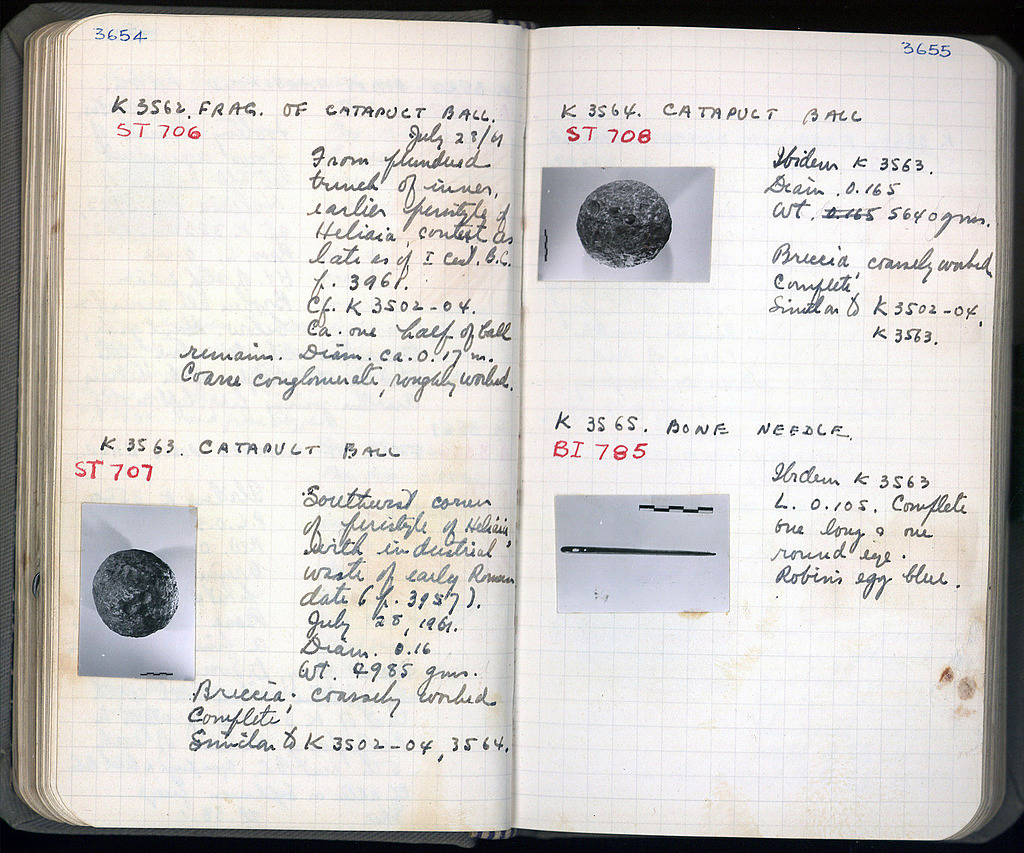 3654
K 3562. FRAG. OF CATAPULT BALL.
ST 706
July 28/61
From plundered
trench of inner,
earlier peristyle of
Heliaia, context as
late as of I cent. B.C.
p. 3961.
Cf. K 3502-04.
Ca. one half of ball
remains. Diam. ca. 0.17 m.
Coarse conglomerate, roughly worked.
K 3563. CATAPULT BALL
ST 707
Southwest corner
of peristyle of Heliaia,
with industrial
waste of early Roman
date (p. 3957).
July 28, 1961.
Diam. 0.16
Wt. 4985 gms.
Breccia; coarsely worked
Complete
Similar to K 3502-04, 3564.
3655
K 3564. CATAPULT BALL
ST 708
Ibidem K 3563.
Diam. 0.165
Wt. 0.165 5640 gms.
Breccia, coarsely worked
Complete
Similar to K 3502-04,
K 3563.
K 3565. BONE NEEDLE.
BI 785
Ibidem K 3563
L. 0.105. Complete
one long & one
round eye.
Robin's egg blue.